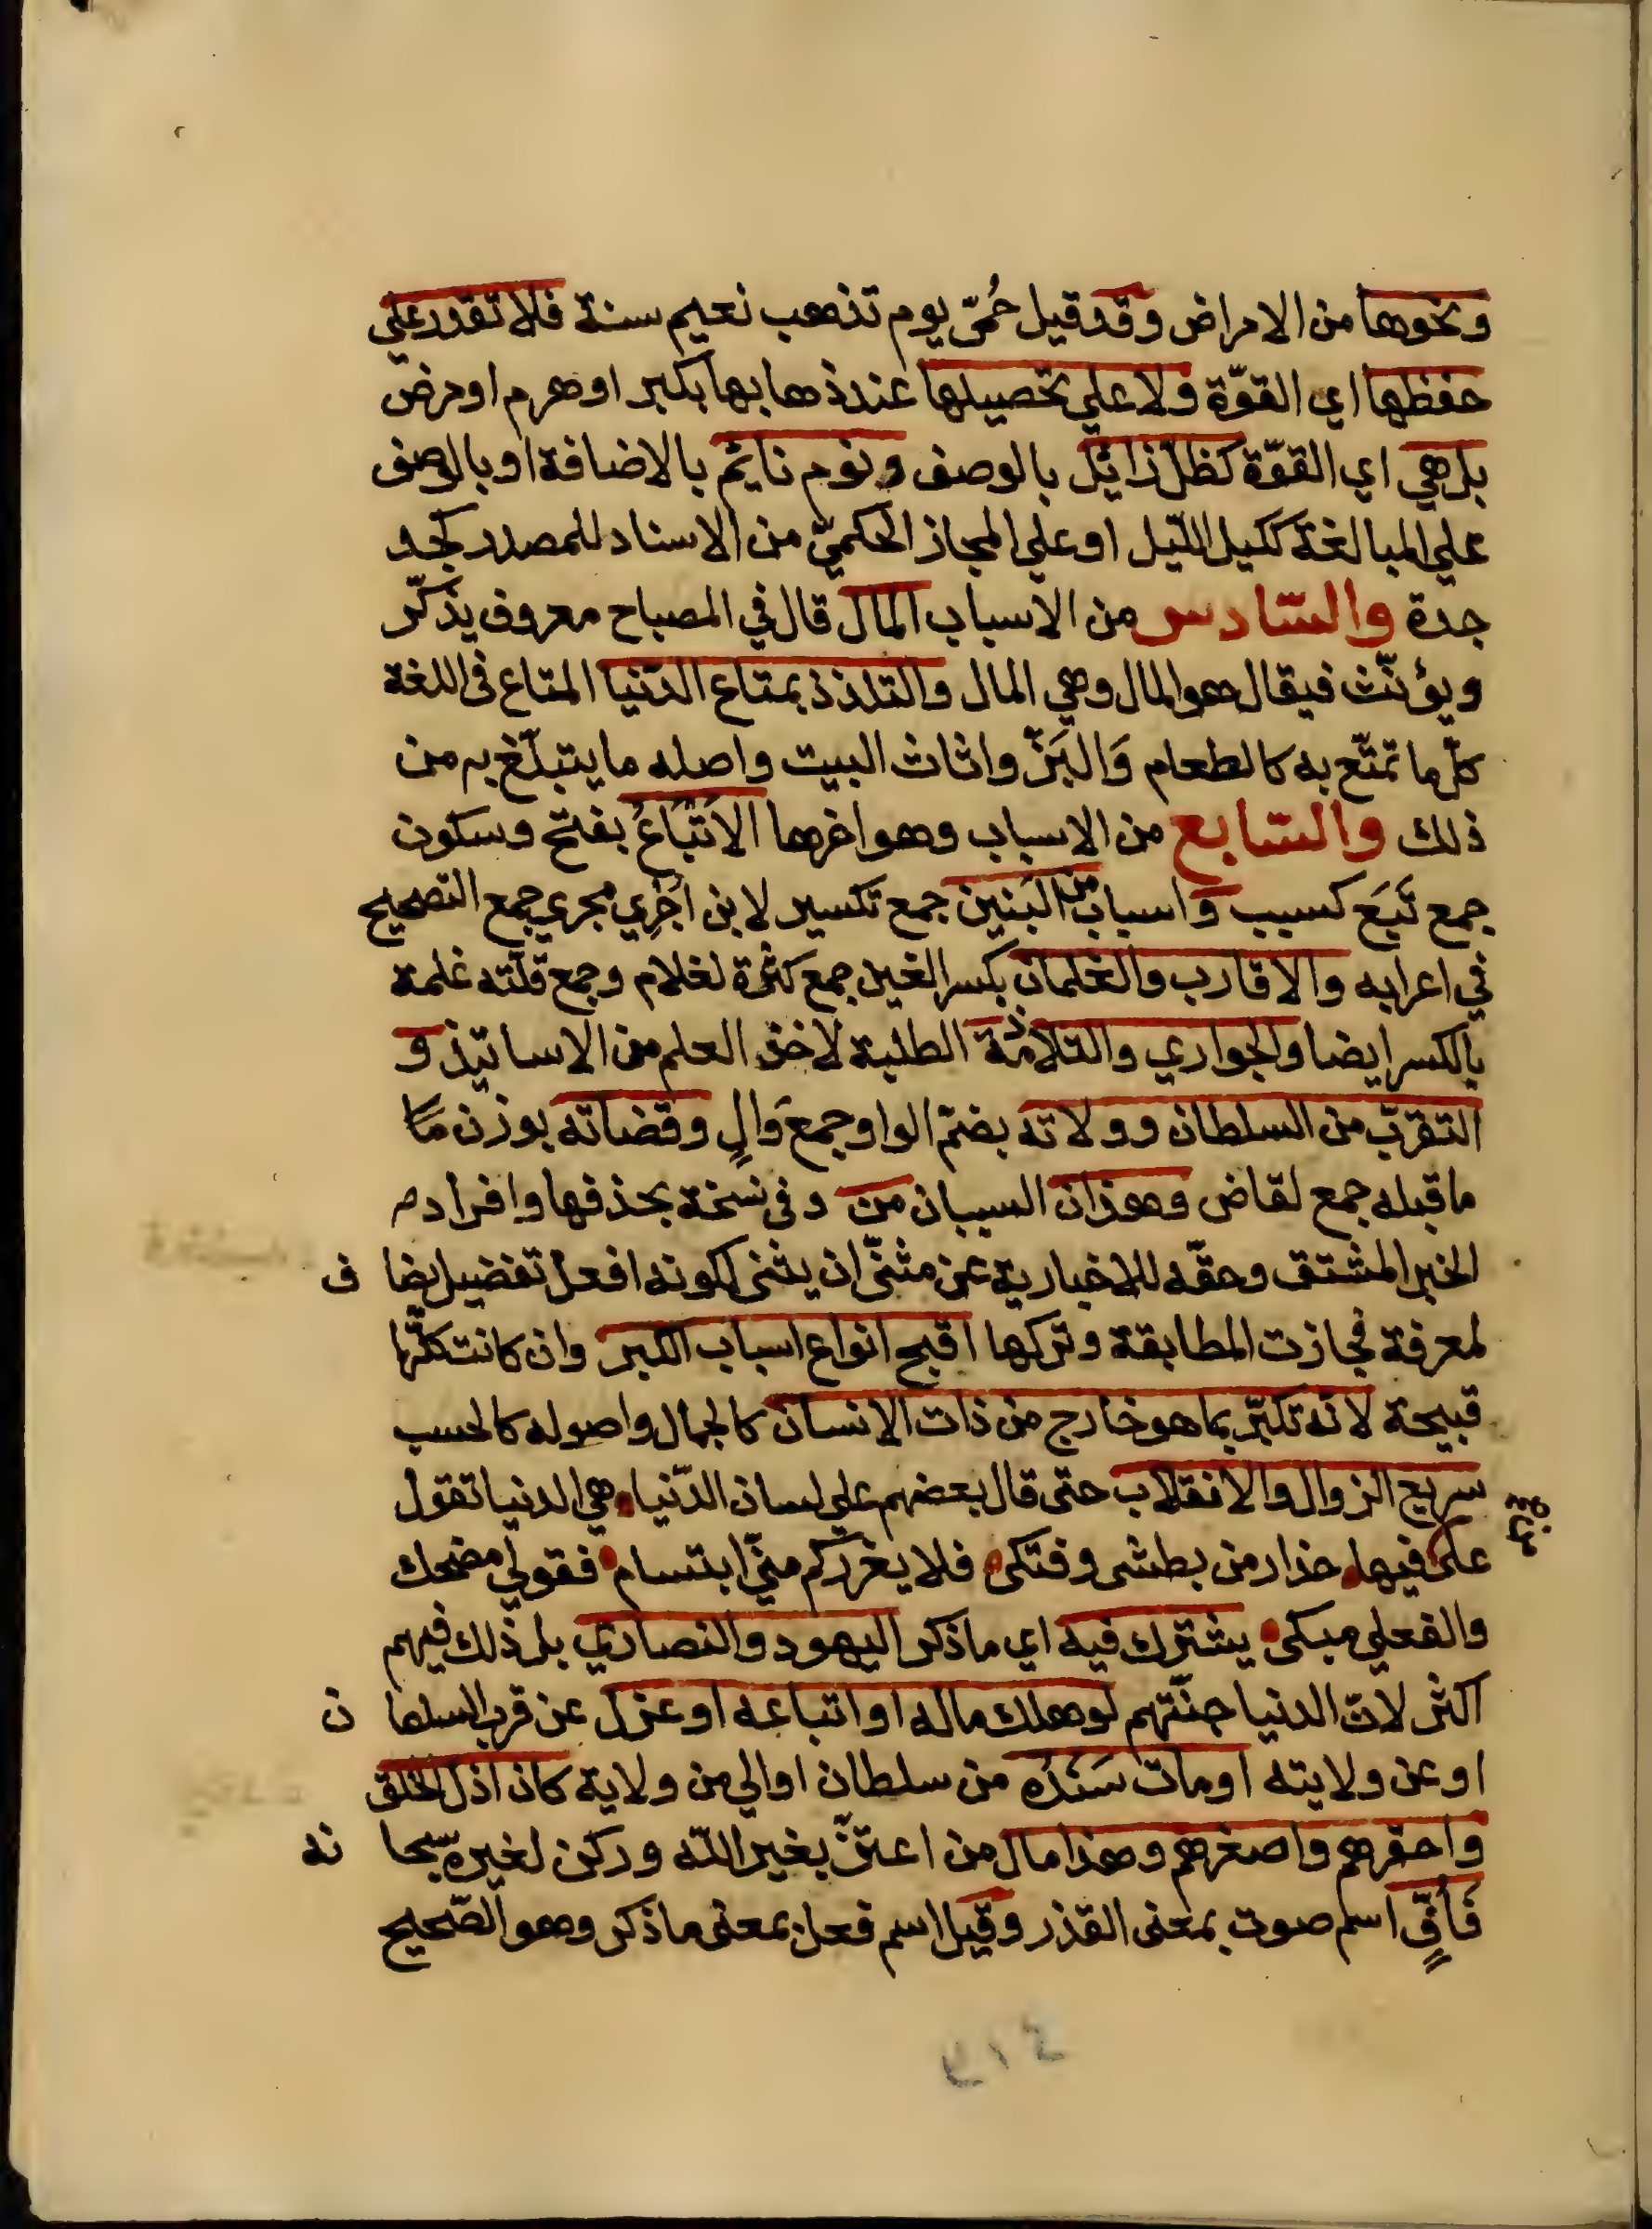 ونحوها من الامراض وقد قيل حُمّى يوم تذهب نعيم سنة فلا تقدر علي
حفظها اي القوّة ولا علي تحصيلها عند ذهابها بكبر او هرم او مرض
بل هي اي القوّة كظلّ زائل بالوصف ونوم نائم بالاضافة او بالوصف
علي المبالغة كليل الليل او علي المجاز الحكميّ من الاسناد للمصدر كجد
جدة والسّادس من الاسباب المال قال في المصباح معروف يذكّر
ويؤنّث فيقال هو المال وهي المال والتلذذ بمتاع الدّنيا المتاع في اللغة
كلّ ما تمتّع به كالطعام وَالبَزّ واثاث البيت واصله ما يتبلّغ به من
ذلك والسّابع من الاسباب وهو اخرها الاَتْبَاعُ بفتح وسكون
جمع تَبَع كسبب و اسباب من البَنين جمع تكسير لابن اُجْرِي مجري جمع التصحيح
في اعرابه والاقارب والغلمان بكسر الغين جمع كثرة لغلام وجمع قلّته غلمة
بالكسر ايضا والجواري والتلامذة الطلبة لاخذ العلم من الاساتيذ و
التقرّب من السلطان وولاته بضمّ الواو جمع وَالٍ وقضاته بوزن مَا
ما قبله جمع لقاض وهذان السببان من وفي نسخة بحذفها وافراده
الخبر المشتق وحقّه للاخبار به عن مثنّى ان يثنى لكونه افعل تفضيل ايضا ف
لمعرفة فجازت المطابقة وتركها اقبح انواع اسباب الكبر وان كانت كلّها
قبيحة لانه تكبّر بما هو خارج من ذات الانسان كالجمال واصوله كالحسب
سريع الزوال والانقلاب حتى قال بعضهم علي لسان الدّنيا هي الدنيا تقول
على فيها حذار من بطشى وفتكى فلا يغرركم منّي ابتسام فقولي مضحك
والفعلي مبكى يشترك فيه اي ما ذكر اليهود والنصاري بل ذلك فيهم
اكثر لان الدنيا جنّتهم لو هلك ماله او اتباعه او عزل عن قرب السلطا ن
او عن ولايته او مات سَنَدُه من سلطان او الي من ولاية كان اذلّ الخلق
واحقرهم واصغرهم وهذا مال من اعتزّ بغير اللّه وركن لغيره سبحا نه
فَاُفٍّ اسم صوت بمعنى القذر وقيل اسم فعل بمعنى ما ذكر وهو الصّحيح